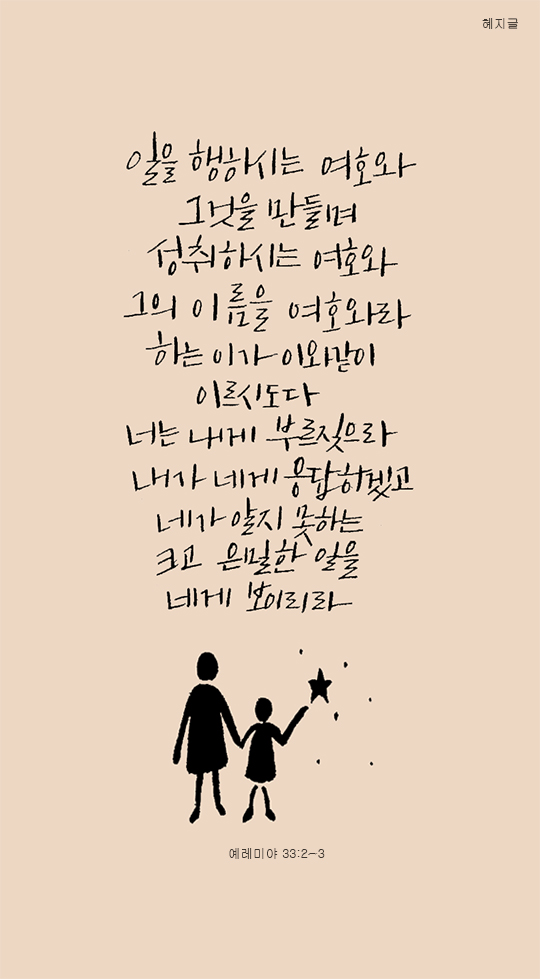 혜지글
일을 행하시는 여호와
그것을 만들며
성취하시는 여호와
그의 이름을 여호와라
하는 이가 이와같이
이르시도다
너는 내게 부르짖으라
내가 네게 응답하겠고
네가 알지 못하는
크고 은밀한 일을
네게 보이리라
예레미야 33:2-3